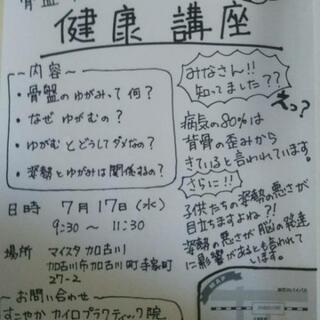 骨盤
健康 講座
～内容～
・骨盤のゆがみって何？
・なぜゆがむの？
・ゆがむとどうしてダメなの？
・姿勢とゆがみは関係するの？
みなさん!!
知ってました??
えっ?
病気の80%は
背骨の歪みから
きていると言われています。
さらに!!
子供たちの姿勢の悪さが
目立ちますよね?!
姿勢の悪さが脳の発達
に影響があるとも言われて
います。
日時 7月17日(水)
9:30～11:30
場所 マイスタ加古川
加古川市加古川町寺家町
27-2
～お問い合わせ～
すこやかカイロプラクティック院